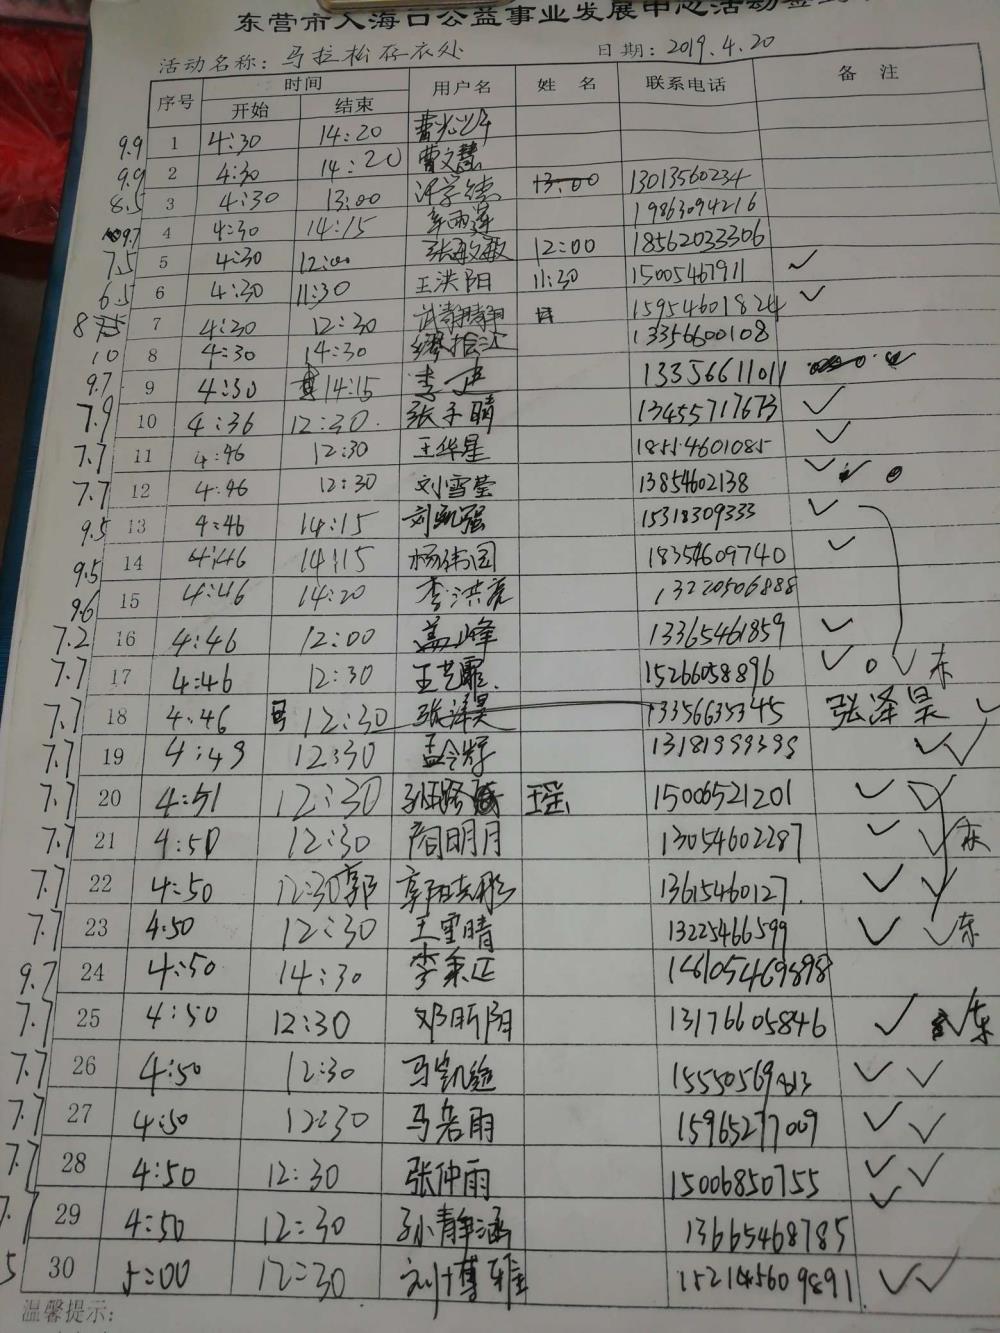 东营市入海口公益事业发展中心活动签
活动名称：马拉松存衣处 日期：2019.4.20
序号 时间 用户名 姓名 联系电话 备注
开始 结束
9.9 1 4:30 14:20
9.9 2 4:30 14:20 曹文慧
8.5 3 4:30 13:00 13:00 13013560234
9.7 4 4:30 14:15 19863094216
7.5 5 4:30 12:00 张敏敏 12:00 18562033306
6.5 6 4:30 11:30 王洪阳 11:30 15005467911 ✓
8 7 4:30 12:30 15954601824 ✓
10 8 4:30 14:30 13356600108
9.7 9 4:30 14:15 13356611011
7.9 10 4:36 12:30 张子晴 13455717673 ✓
7.7 11 4:46 12:30 王华星 18554601085 ✓
7.7 12 4:46 12:30 刘雪莹 13854602138 ✓
9.5 13 4:46 14:15 刘凯强 15318309333 ✓
9.5 14 4:46 14:15 杨伟国 18354609740 ✓
9.6 15 4:46 14:20 李洪亮 13220506888
7.2 16 4:46 12:00 盖峰 13365461859 ✓
7.7 17 4:46 12:30 王艺霏 15266058896 ✓ ✓ 东
7.7 18 4:46 12:30 张泽昊 13356635345 张泽昊 ✓
7.7 19 4:49 12:30 孟令辉 ✓✓
7.7 20 4:51 12:30 15006521201 ✓ ✓
7.7 21 4:50 12:30 商明月 13054602287 ✓ ✓ 东
7.7 22 4:50 12:30 郭 13615460127 ✓ ✓
7.7 23 4:50 12:30 王雪晴 13225466599 ✓ ✓ 东
9.7 24 4:50 14:30 李秉正
7.7 25 4:50 12:30 邓昕阳 13176605846 ✓ ✓ 东
7.7 26 4:50 12:30 马凯 ✓ ✓
7.7 27 4:50 12:30 马若雨 15965277009 ✓ ✓
7.7 28 4:50 12:30 张仲雨 15006850755 ✓ ✓
7.7 29 4:50 12:30 孙静涵 13665468785 ✓
5 30 5:00 12:30 刘博雅 ✓✓
温馨提示：